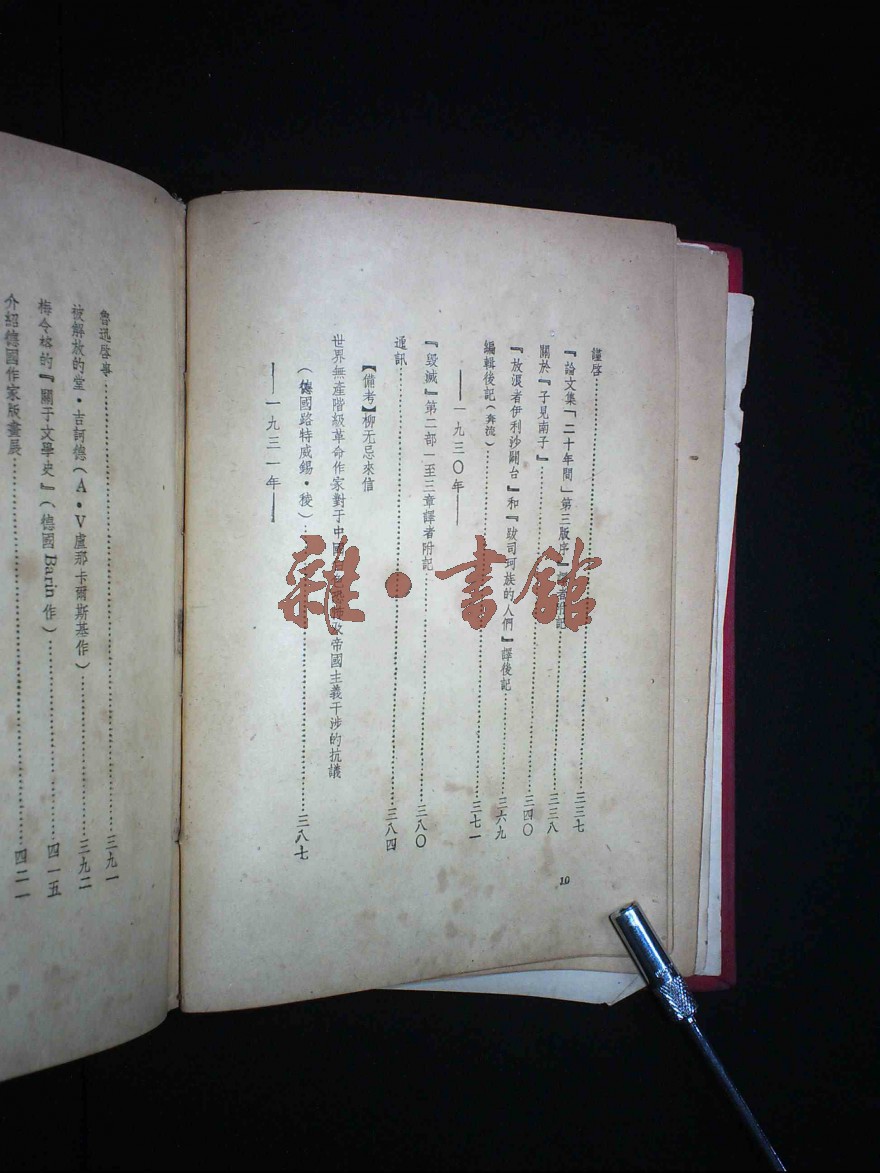 謹啓……三三七
『論文集「二十年間」第三版序』譯者附記……三三八
關於『子見南子』……三四〇
『放浪者伊利沙闢台』和『跋司珂族的人們』譯後記……三六九
編輯後記(奔流)……三七一
——一九三〇年——
『毀滅』第二部一至三章譯者附記……三八〇
通訊……三八四
【備考】柳无忌來信
世界無產階級革命作家對于中國 帝國主義干涉的抗議
(德國路特威錫·稜)……三八七
——一九三一年——
10
魯迅啓事……三九一
被解放的堂·吉訶德(A·V盧那卡爾斯基作)……三九二
梅令格的『關于文學史』(德國Barin作)……四一五
介紹德國作家版畫展……四二一
雜·書館